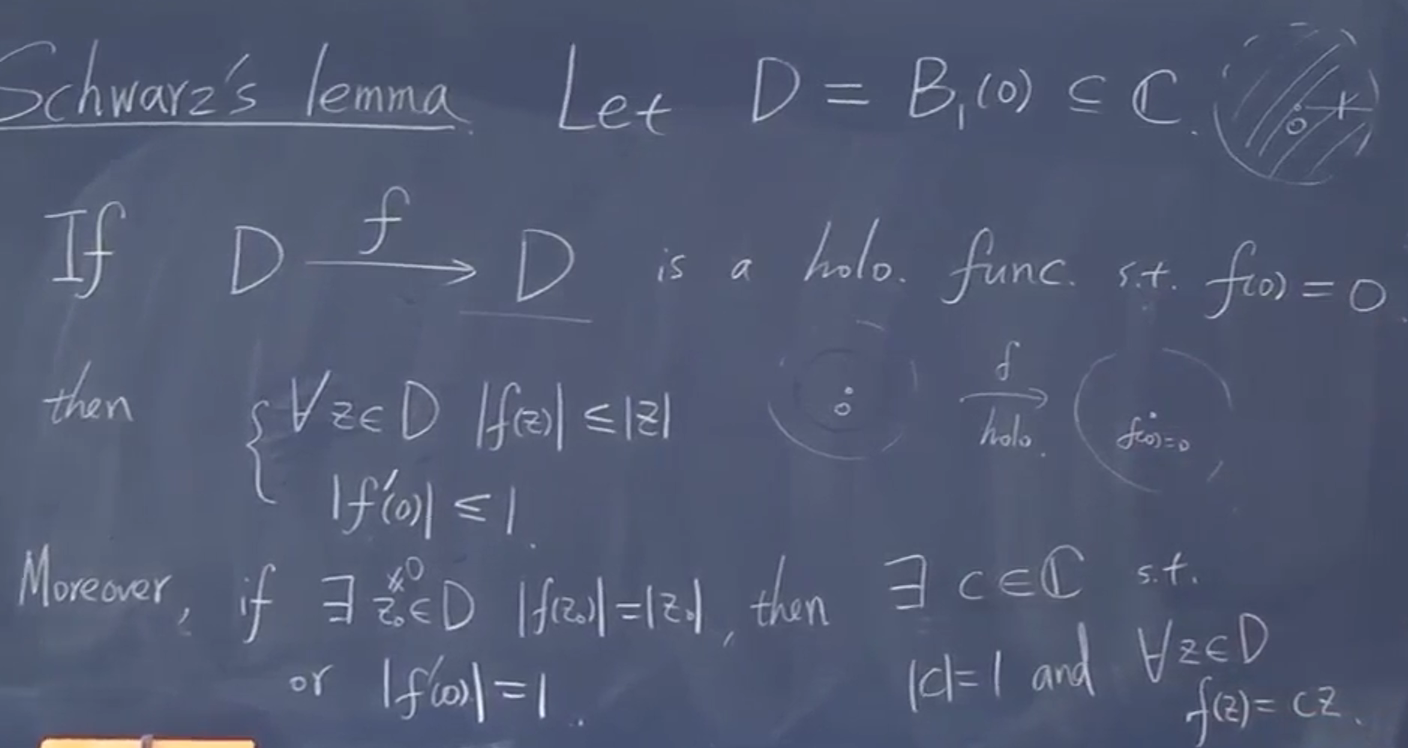 Schwarz's lemma. Let D = B₁(0) ⊆ ℂ.
0
If D f→ D is a holo. func. s.t. f(0) = 0.
then { ∀z∈D |f(z)| ≤ |z|
|f'(0)| ≤ 1.
0 f→ holo. f(0)=0
Moreover, if ∃ z₀∈D |f(z₀)|=|z₀|, then ∃ c∈ℂ s.t.
≠0
or |f'(0)|=1. |c|=1 and ∀z∈D
f(z) = cz.